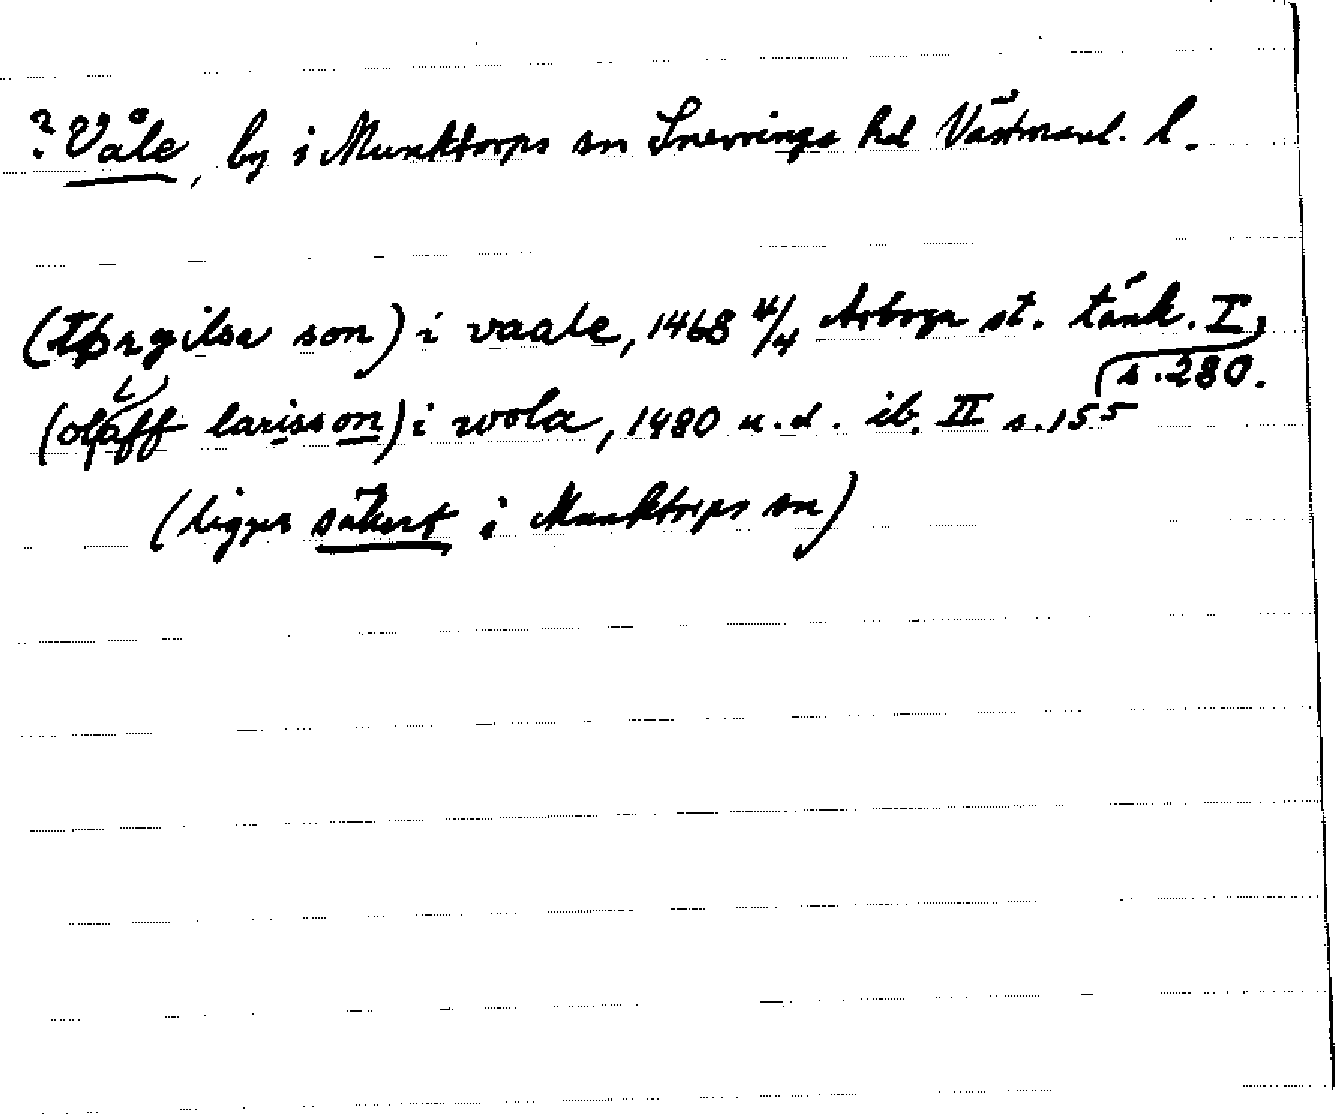 ? Våle, by i Munktorps sn Snevringe hd Västmanl. l.
(thyrgilse son) i vaale, 1468 4/4 Arboga st. tänk. I,
s. 280.
(olaff larisson) i wola, 1480 u.d. ib. II s. 155
(ligger säkert i Munktorps sn)